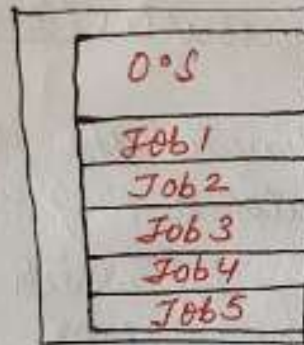 O°S
Job 1
Job 2
Job 3
Job 4
Job 5